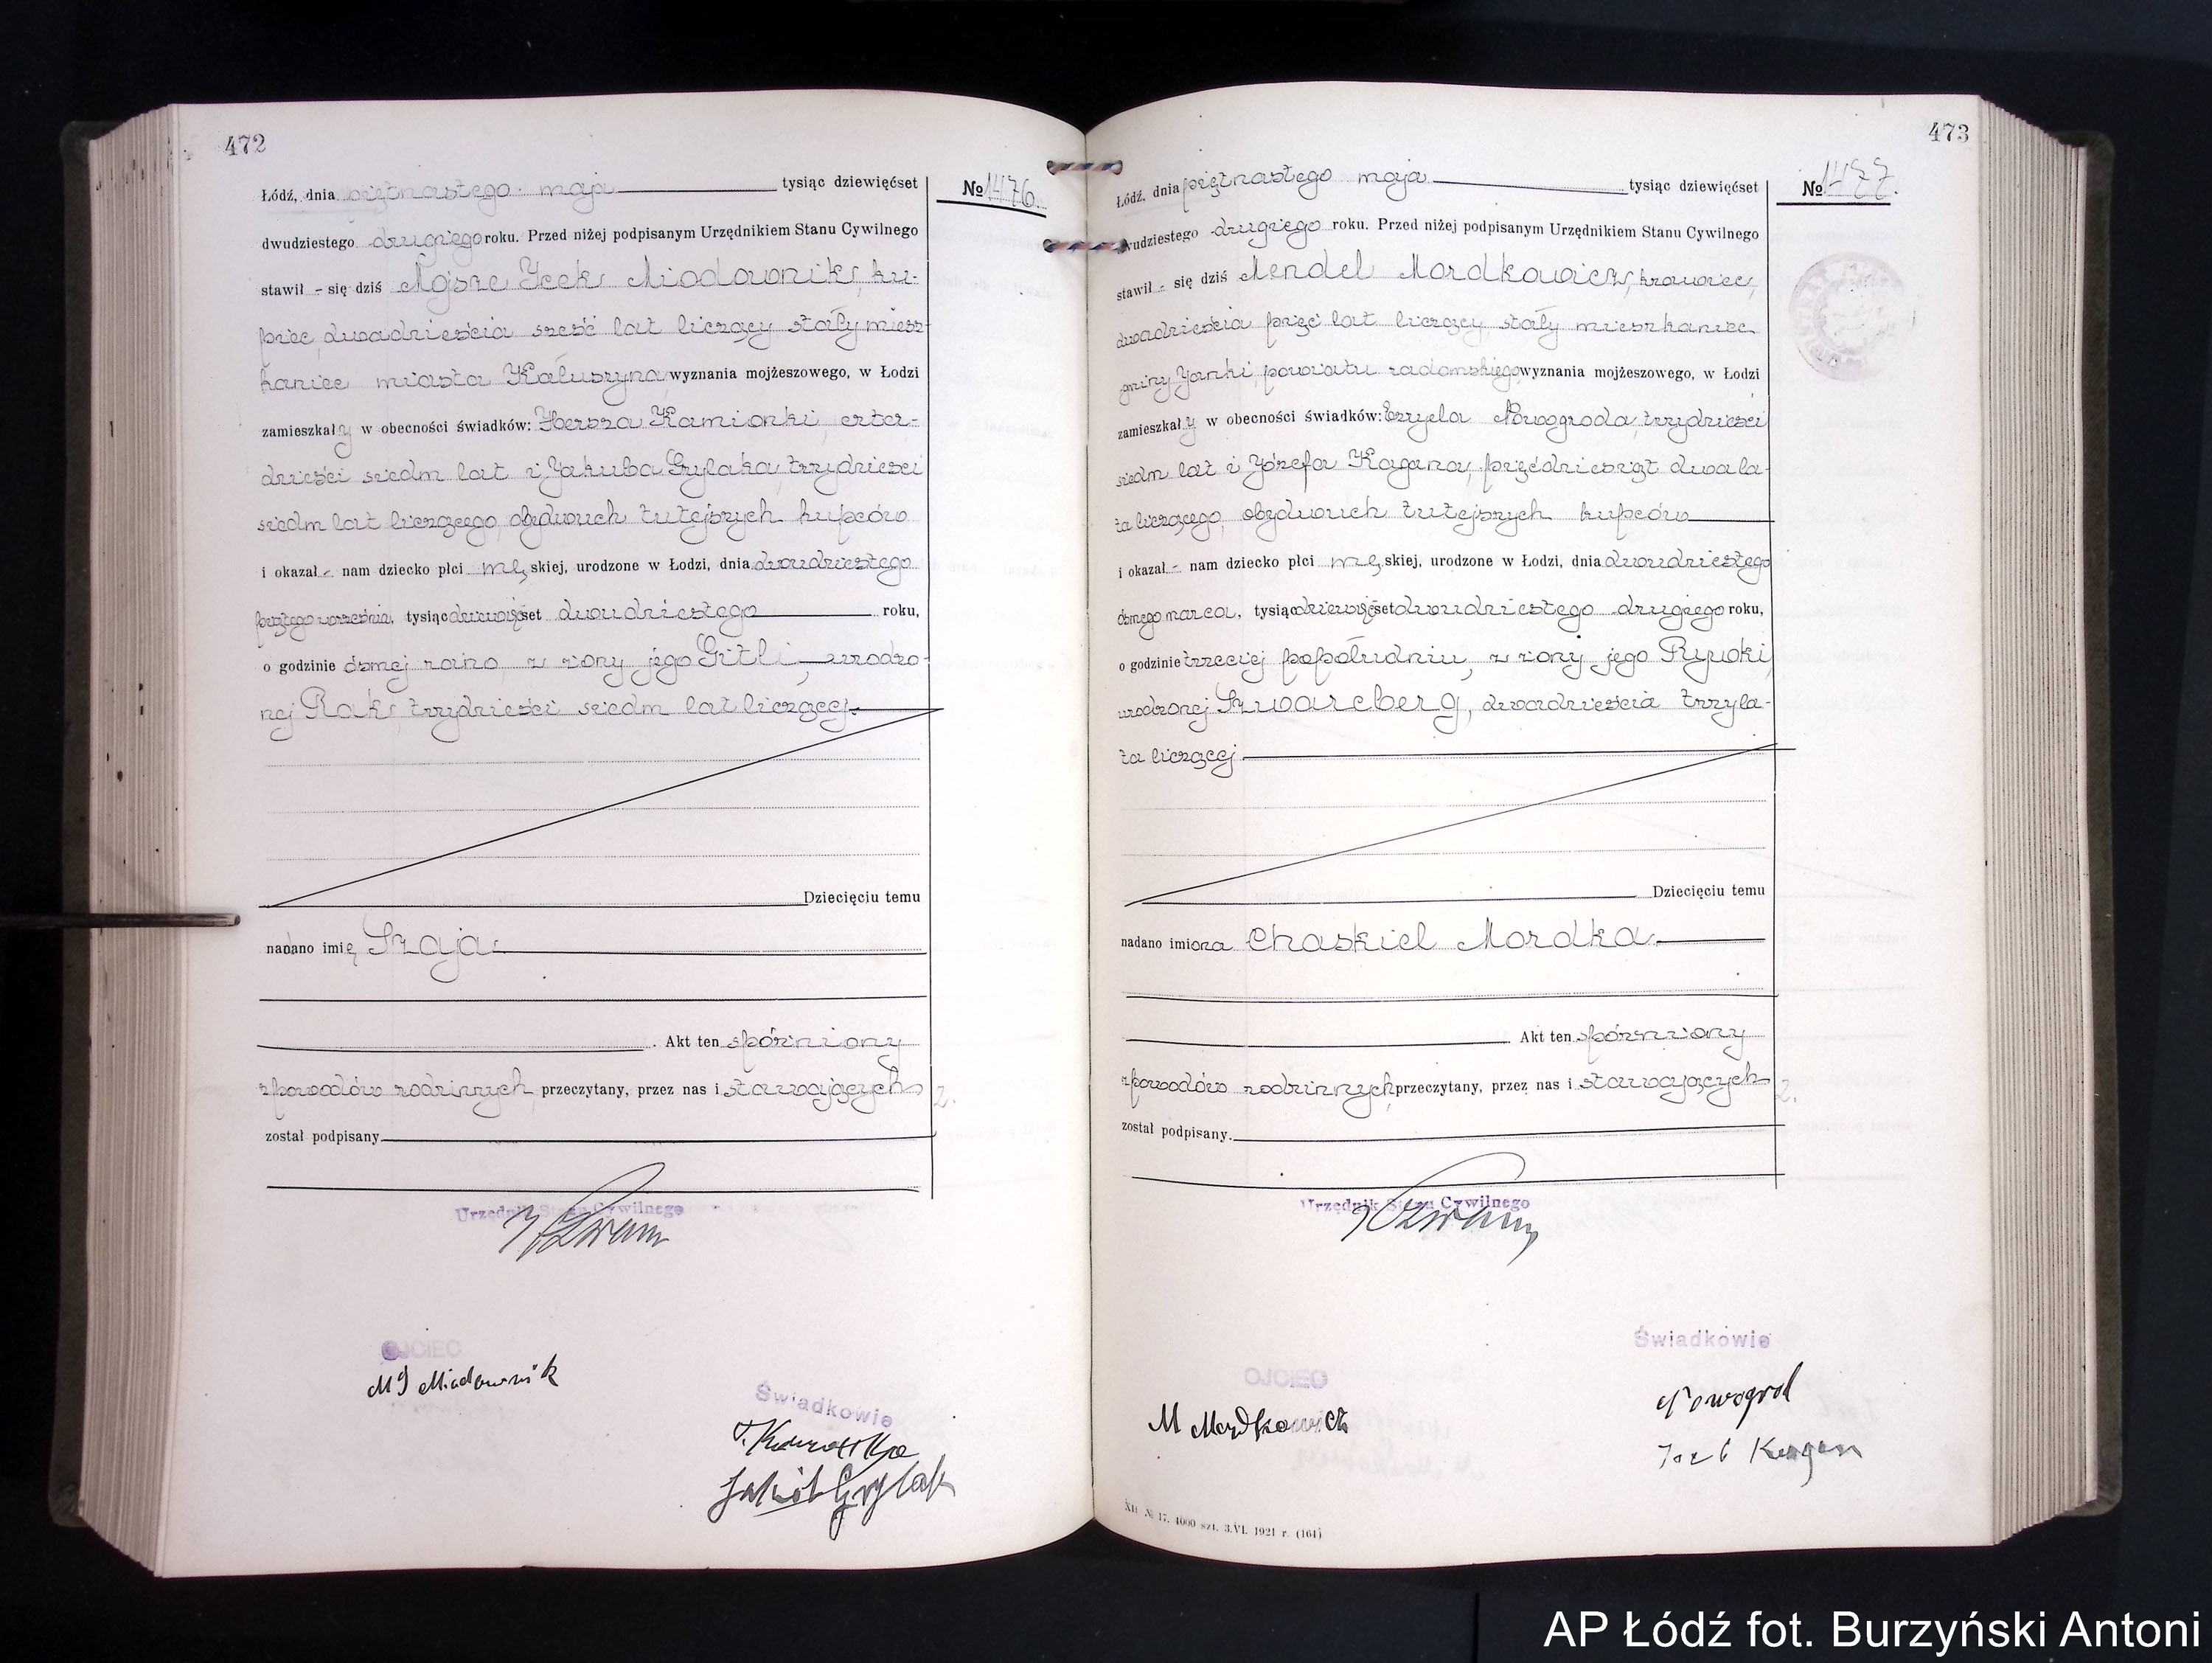 472
Łódź, dnia piętnastego maja tysiąc dziewięćset
№ 1476.
dwudziestego drugiego roku. Przed niżej podpisanym Urzędnikiem Stanu Cywilnego
stawił - się dziś Mojsze Icek Miodownik, ku-
piec, dwadzieścia sześć lat liczący, stały miesz-
kaniec miasta Kałuszyna wyznania mojżeszowego, w Łodzi
zamieszkały w obecności świadków: Hersza Kamionki, czter-
dzieści siedm lat i Jakuba Grylaka, trzydzieści
siedm lat liczącego, obydwuch tutejszych kupców
i okazał - nam dziecko płci męskiej, urodzone w Łodzi, dnia dwudziestego
piątego września, tysiąc dziewięćset dwudziestego roku,
o godzinie ósmej rano, z żony jego Gitli, urodzo-
nej Rak, trzydzieści siedm lat liczącej.
Dziecięciu temu
nadano imię Szaja.
Akt ten spóźniony
z powodów rodzinnych, przeczytany, przez nas i stawających 2.
został podpisany.
Urzędnik Stanu Cywilnego
OJCIEC
M I Miodownik
Świadkowie
Jakób Grylak
473
Łódź, dnia piętnastego maja tysiąc dziewięćset
№ 1477.
dwudziestego drugiego roku. Przed niżej podpisanym Urzędnikiem Stanu Cywilnego
stawił - się dziś Mendel Mordkowicz, krawiec,
dwadzieścia pięć lat liczący, stały mieszkaniec
gminy Janki, powiatu radomskiego wyznania mojżeszowego, w Łodzi
zamieszkały w obecności świadków: Ezryela Nowogroda, trzydzieści
siedm lat i Józefa Kagana, pięćdziesiąt dwa la-
ta liczącego, obydwuch tutejszych kupców
i okazał - nam dziecko płci męskiej, urodzone w Łodzi, dnia dwudziestego
ósmego marca, tysiąc dziewięćset dwudziestego drugiego roku,
o godzinie trzeciej popołudniu, z żony jego Rywki,
urodzonej Szwarcberg, dwadzieścia trzy la-
ta liczącej
Dziecięciu temu
nadano imiona Chaskiel Mordka.
Akt ten spóźniony
z powodów rodzinnych, przeczytany, przez nas i stawających 2.
został podpisany.
Urzędnik Stanu Cywilnego
OJCIEC
M Mordkowicz
Świadkowie
Nowogrod
Kagan
XII № 17. 4000 szt. 3.VI. 1921 r. (164)
AP Łódź fot. Burzyński Antoni